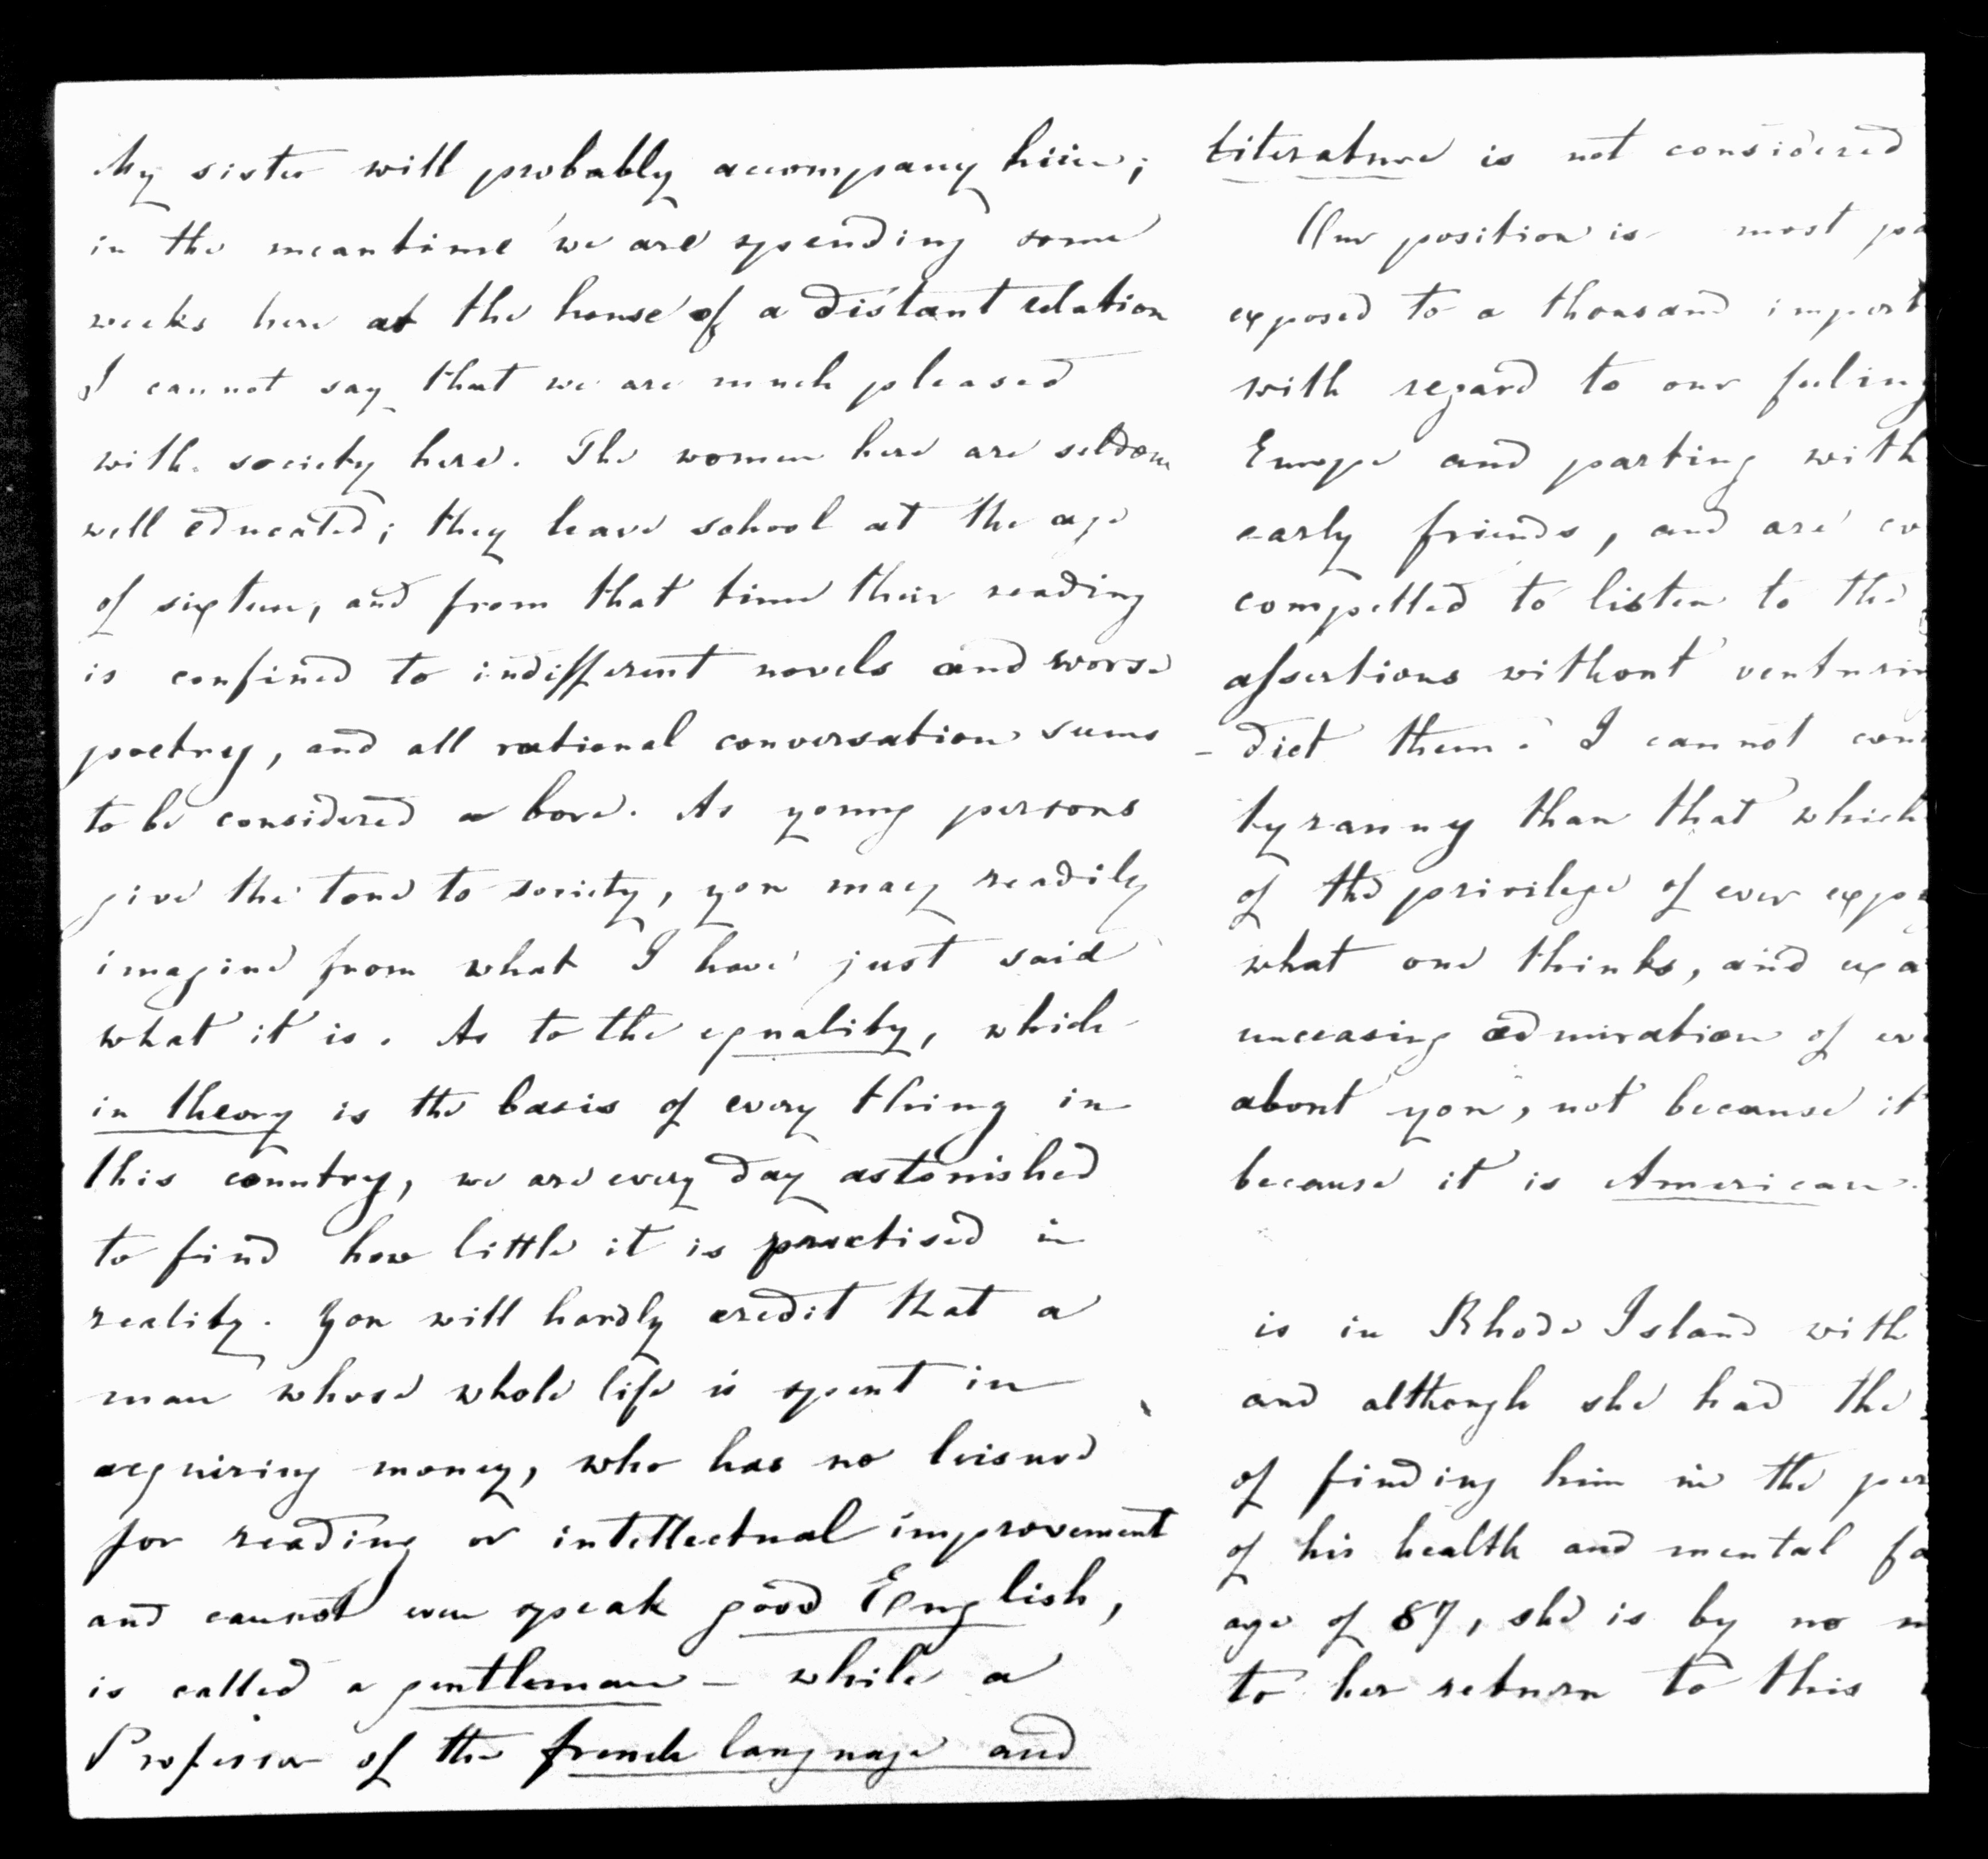 My sister will probably accompany him;
in the meantime we are spending some
weeks here at the house of a distant relation
I cannot say that we are much pleased
with society here. The women here are seldom
well educated; they leave school at the age
of sixteen, and from that time their reading
is confined to indifferent novels and worse
poetry, and all rational conversation seems
to be considered a bore. As young persons
give the tone to society, you may readily
imagine from what I have just said
what it is. As to the equality, which
in theory is the basis of every thing in
this country, we are every day astonished
to find how little it is practised in
reality. You will hardly credit that a
man whose whole life is spent in
acquiring money, who has no leisure
for reading or intellectual improvement
and cannot even speak good English,
is called a gentleman – while a
Professor of the french language and
literature is not considered
Our position is most pa
exposed to a thousand impert
with regard to our feeling
Europe and parting with
early friends, and are ev
compelled to listen to the
assertions without venturin
-dict them. I cannot con
tyranny than that which
of the privilege of ever exp
what one thinks, and exa
unceasing admiration of ev
about you, not because it
because it is American.
is in Rhode Island with
and although she had the
of finding him in the per
of his health and mental fa
age of 87, she is by no m
to her return to this